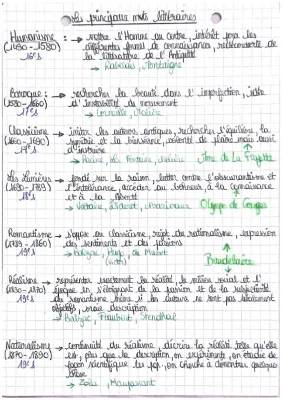 Les principaux mots littéraires
Humanisme : → mettre l'Homme au centre, intérêt pour les
(1480 - 1580) différentes formes de connaissances, redécouverte de
16e s la littérature de l'Antiquité
→ Rabelais, Montaigne
Baroque : → rechercher la beauté dans l'imperfection, idée
(1580 - 1660) d'instabilité de mouvement
17e s → Corneille, Molière
Classicisme → imiter les auteurs antiques, rechercher l'équilibre, la
(1660 - 1690) symétrie et la bienséance, volonté de plaire mais aussi
17e s d'instruire
→ Racine, La Fontaine, Mme de La Fayette
Les Lumières → fondé sur la raison, lutter contre l'obscurantisme et
l'intolérance, accéder au bonheur, à la connaissance
18e s et à la liberté
→ Voltaire, Diderot, Marivaux Olympe de Gouges
Romantisme → s'oppose au classicisme, rejet du rationalisme, expression
des sentiments et des passions
19e s → Balzac, Hugo, de Musset
Baudelaire
Réalisme → représenter exactement la réalité, le milieu social et l'
époque en s'éloignant de la passion et de la subjectivité
19e s du romantisme même si les auteurs ne sont pas totalement
objectifs, description
→ Balzac, Flaubert, Stendhal
Naturalisme → continuité du réalisme décrire la réalité telle qu'elle
(1870 - 1890) est, plus que la description, on expérimente, on étudie de
19e s façon scientifique, on cherche à démontrer quelque
chose
→ Zola, Maupassant